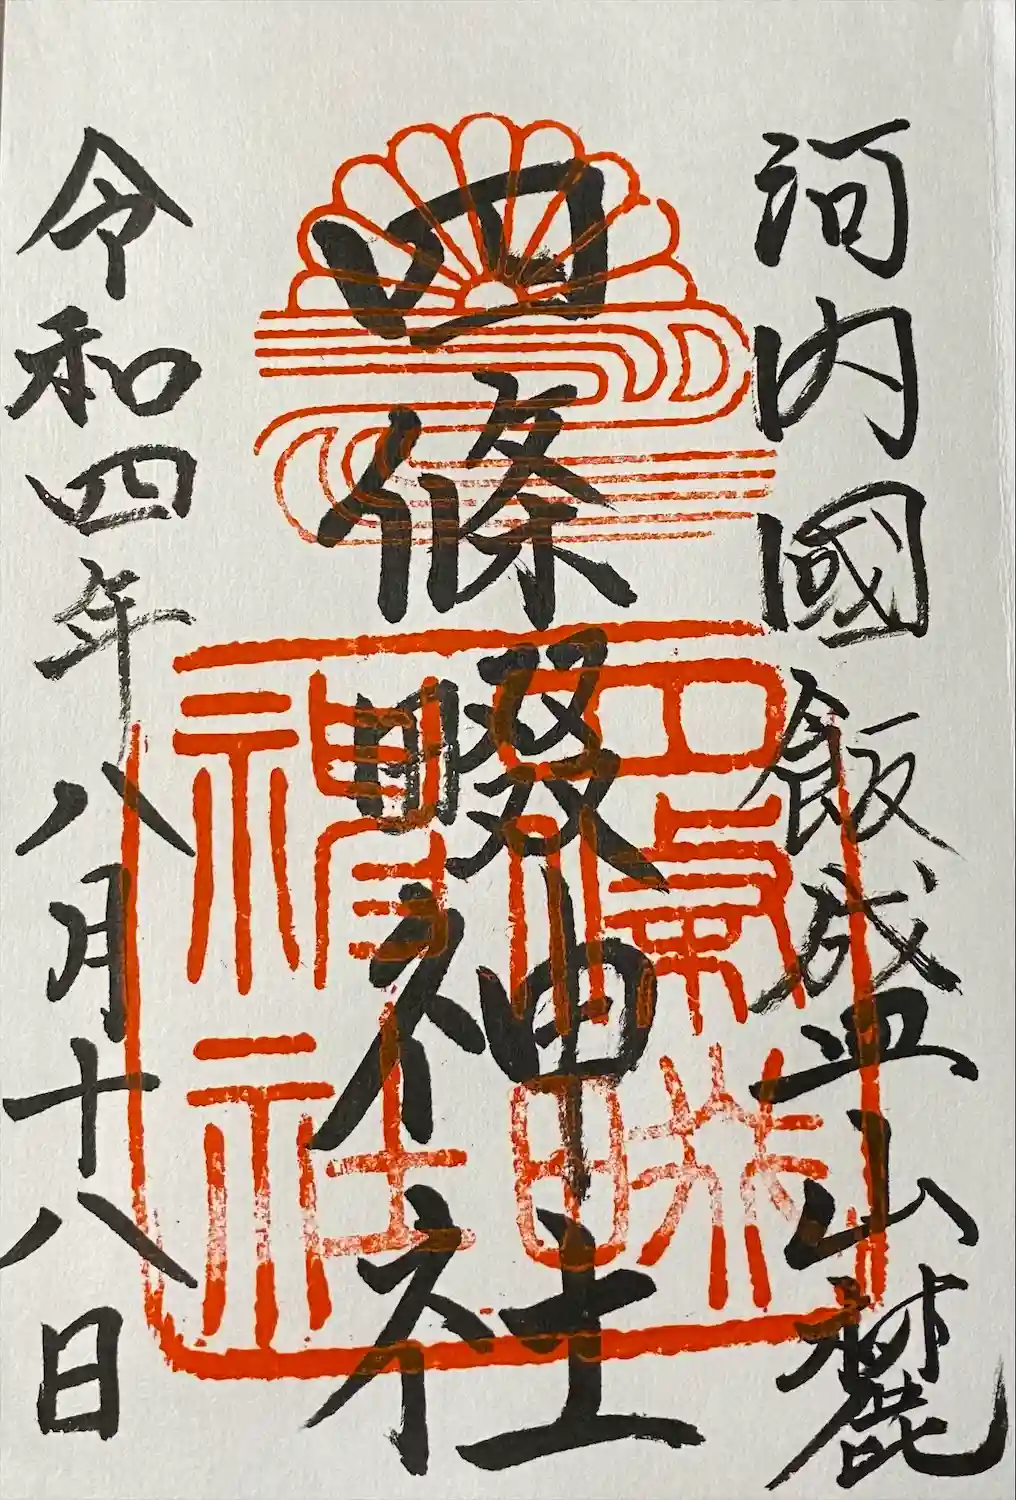 河内國飯盛山麓
四條畷神社
四條畷
神社
令和四年八月十八日